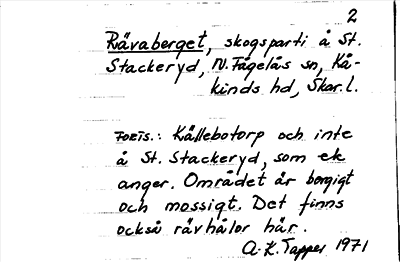 2
Räva​berget, skogsparti å St.
Stackeryd, N. Fågelås sn, Kå-
kinds hd, Skar. l.
FORTS.: Källebotorp och inte
å St. Stackeryd, som ek
anger. Området är bergigt
och mossigt. Det finns
också rävhålor här.
A. K. Tapper 1971